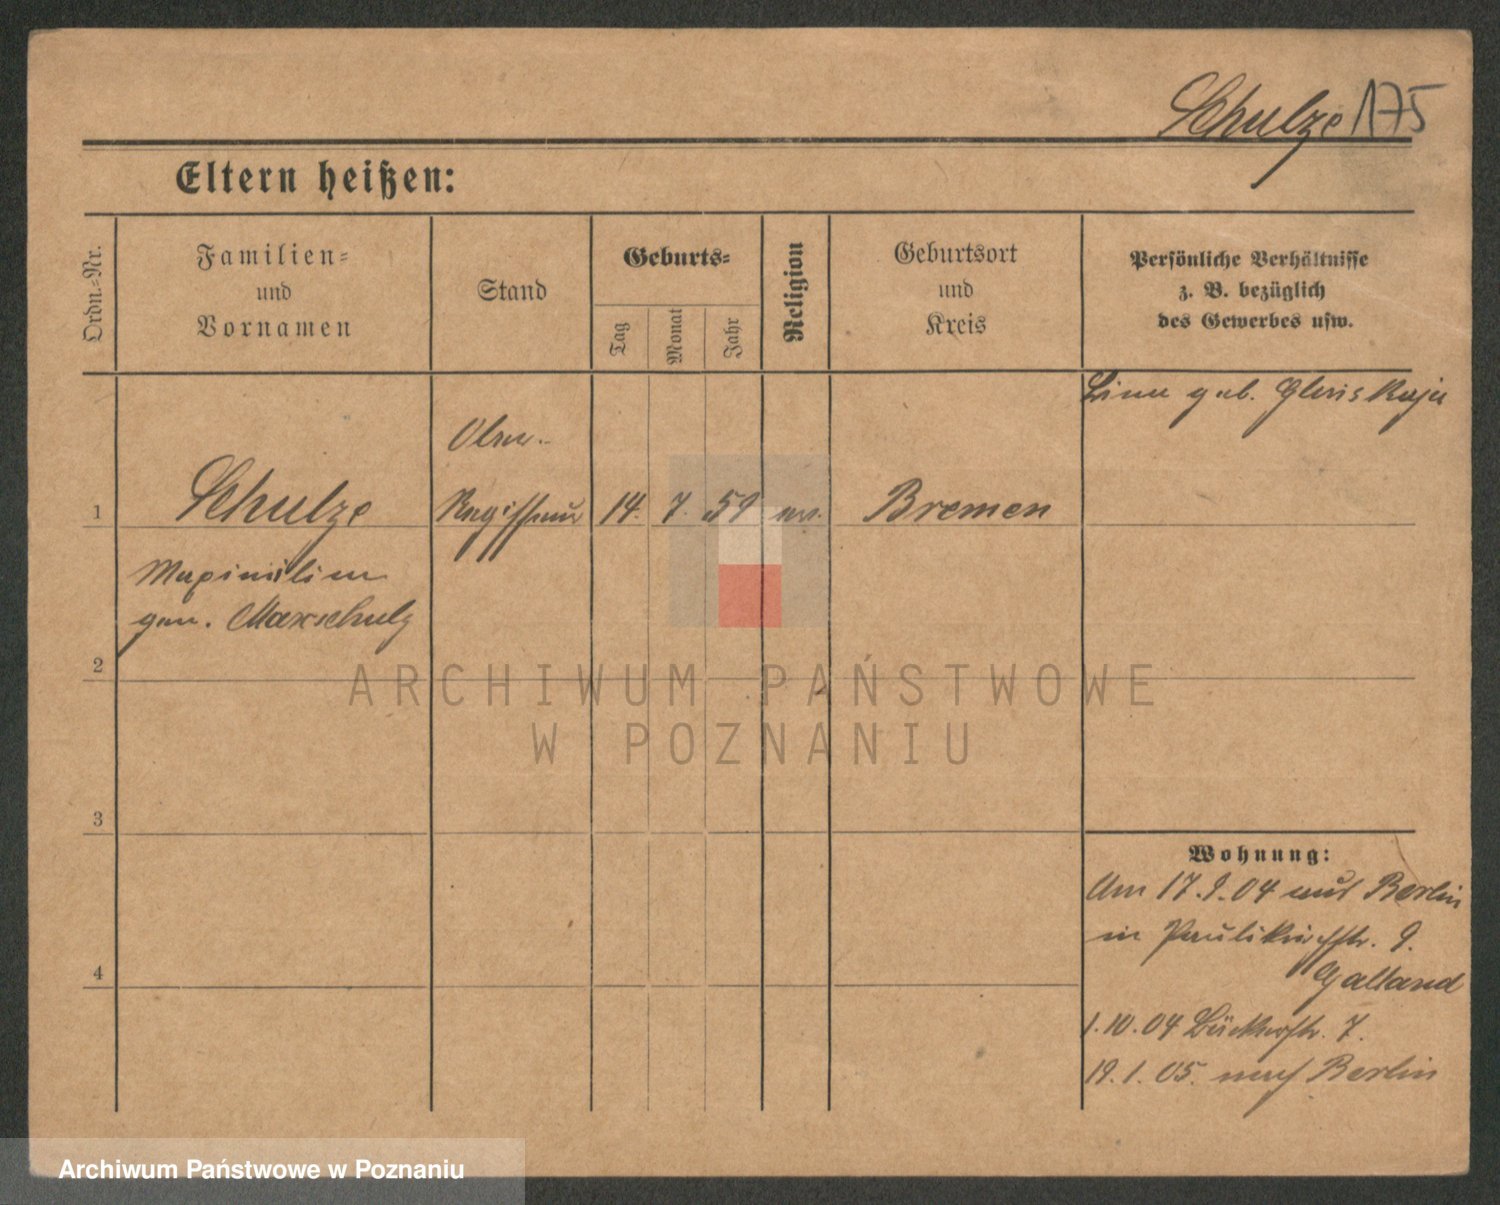 Schulze 175
Eltern heißen:
Ordn.-Nr.
Familien-
und
Vornamen
Stand
Geburts-
Tag
Monat
Jahr
Religion
Geburtsort
und
Kreis
Persönliche Verhältnisse
z. B. bezüglich
des Gewerbes usw.
geb.
1
Schulze
Ober-
Regisseur
14. 7. 59
ev.
Bremen
Maximilian
gen. Marxschulz
2
3
4
Wohnung:
Am 17.9.04 aus Berlin
in Paulikirchstr. 9.
Galland
1.10.04 Bäckerstr. 7.
19.1.05. nach Berlin
ARCHIWUM PAŃSTWOWE
W POZNANIU
Archiwum Państwowe w Poznaniu